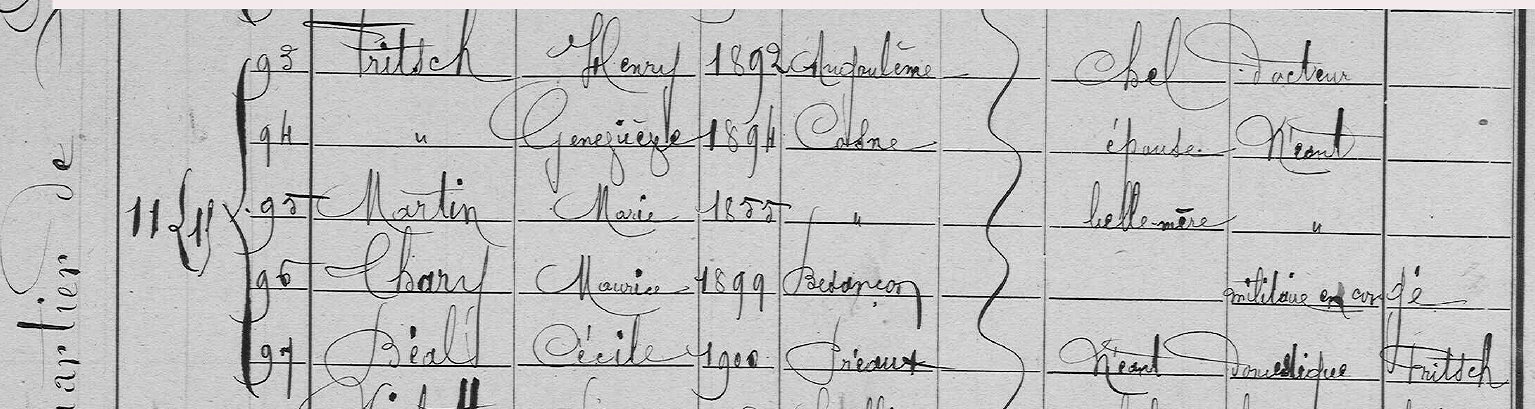 93 Fritsch Henry 1892 Angoulême Chef Docteur
94 " Geneviève 1894 Cosne épouse Néant
11 11 95 Martin Marie 1855 " belle-mère "
96 Chary Maurice 1899 Besançon militaire en congé
97 Cécile 1900 Préaux Néant Domestique Fritsch
quartier de